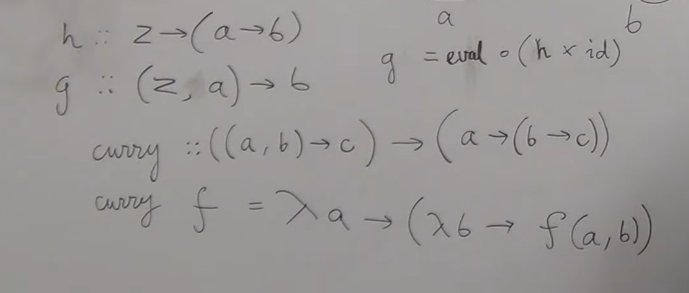 h :: z→(a→b)
a b
g :: (z, a)→ b
g = eval ∘ (h × id)
curry :: ((a, b)→c) → (a→(b→c))
curry f = λa → (λb → f(a, b))